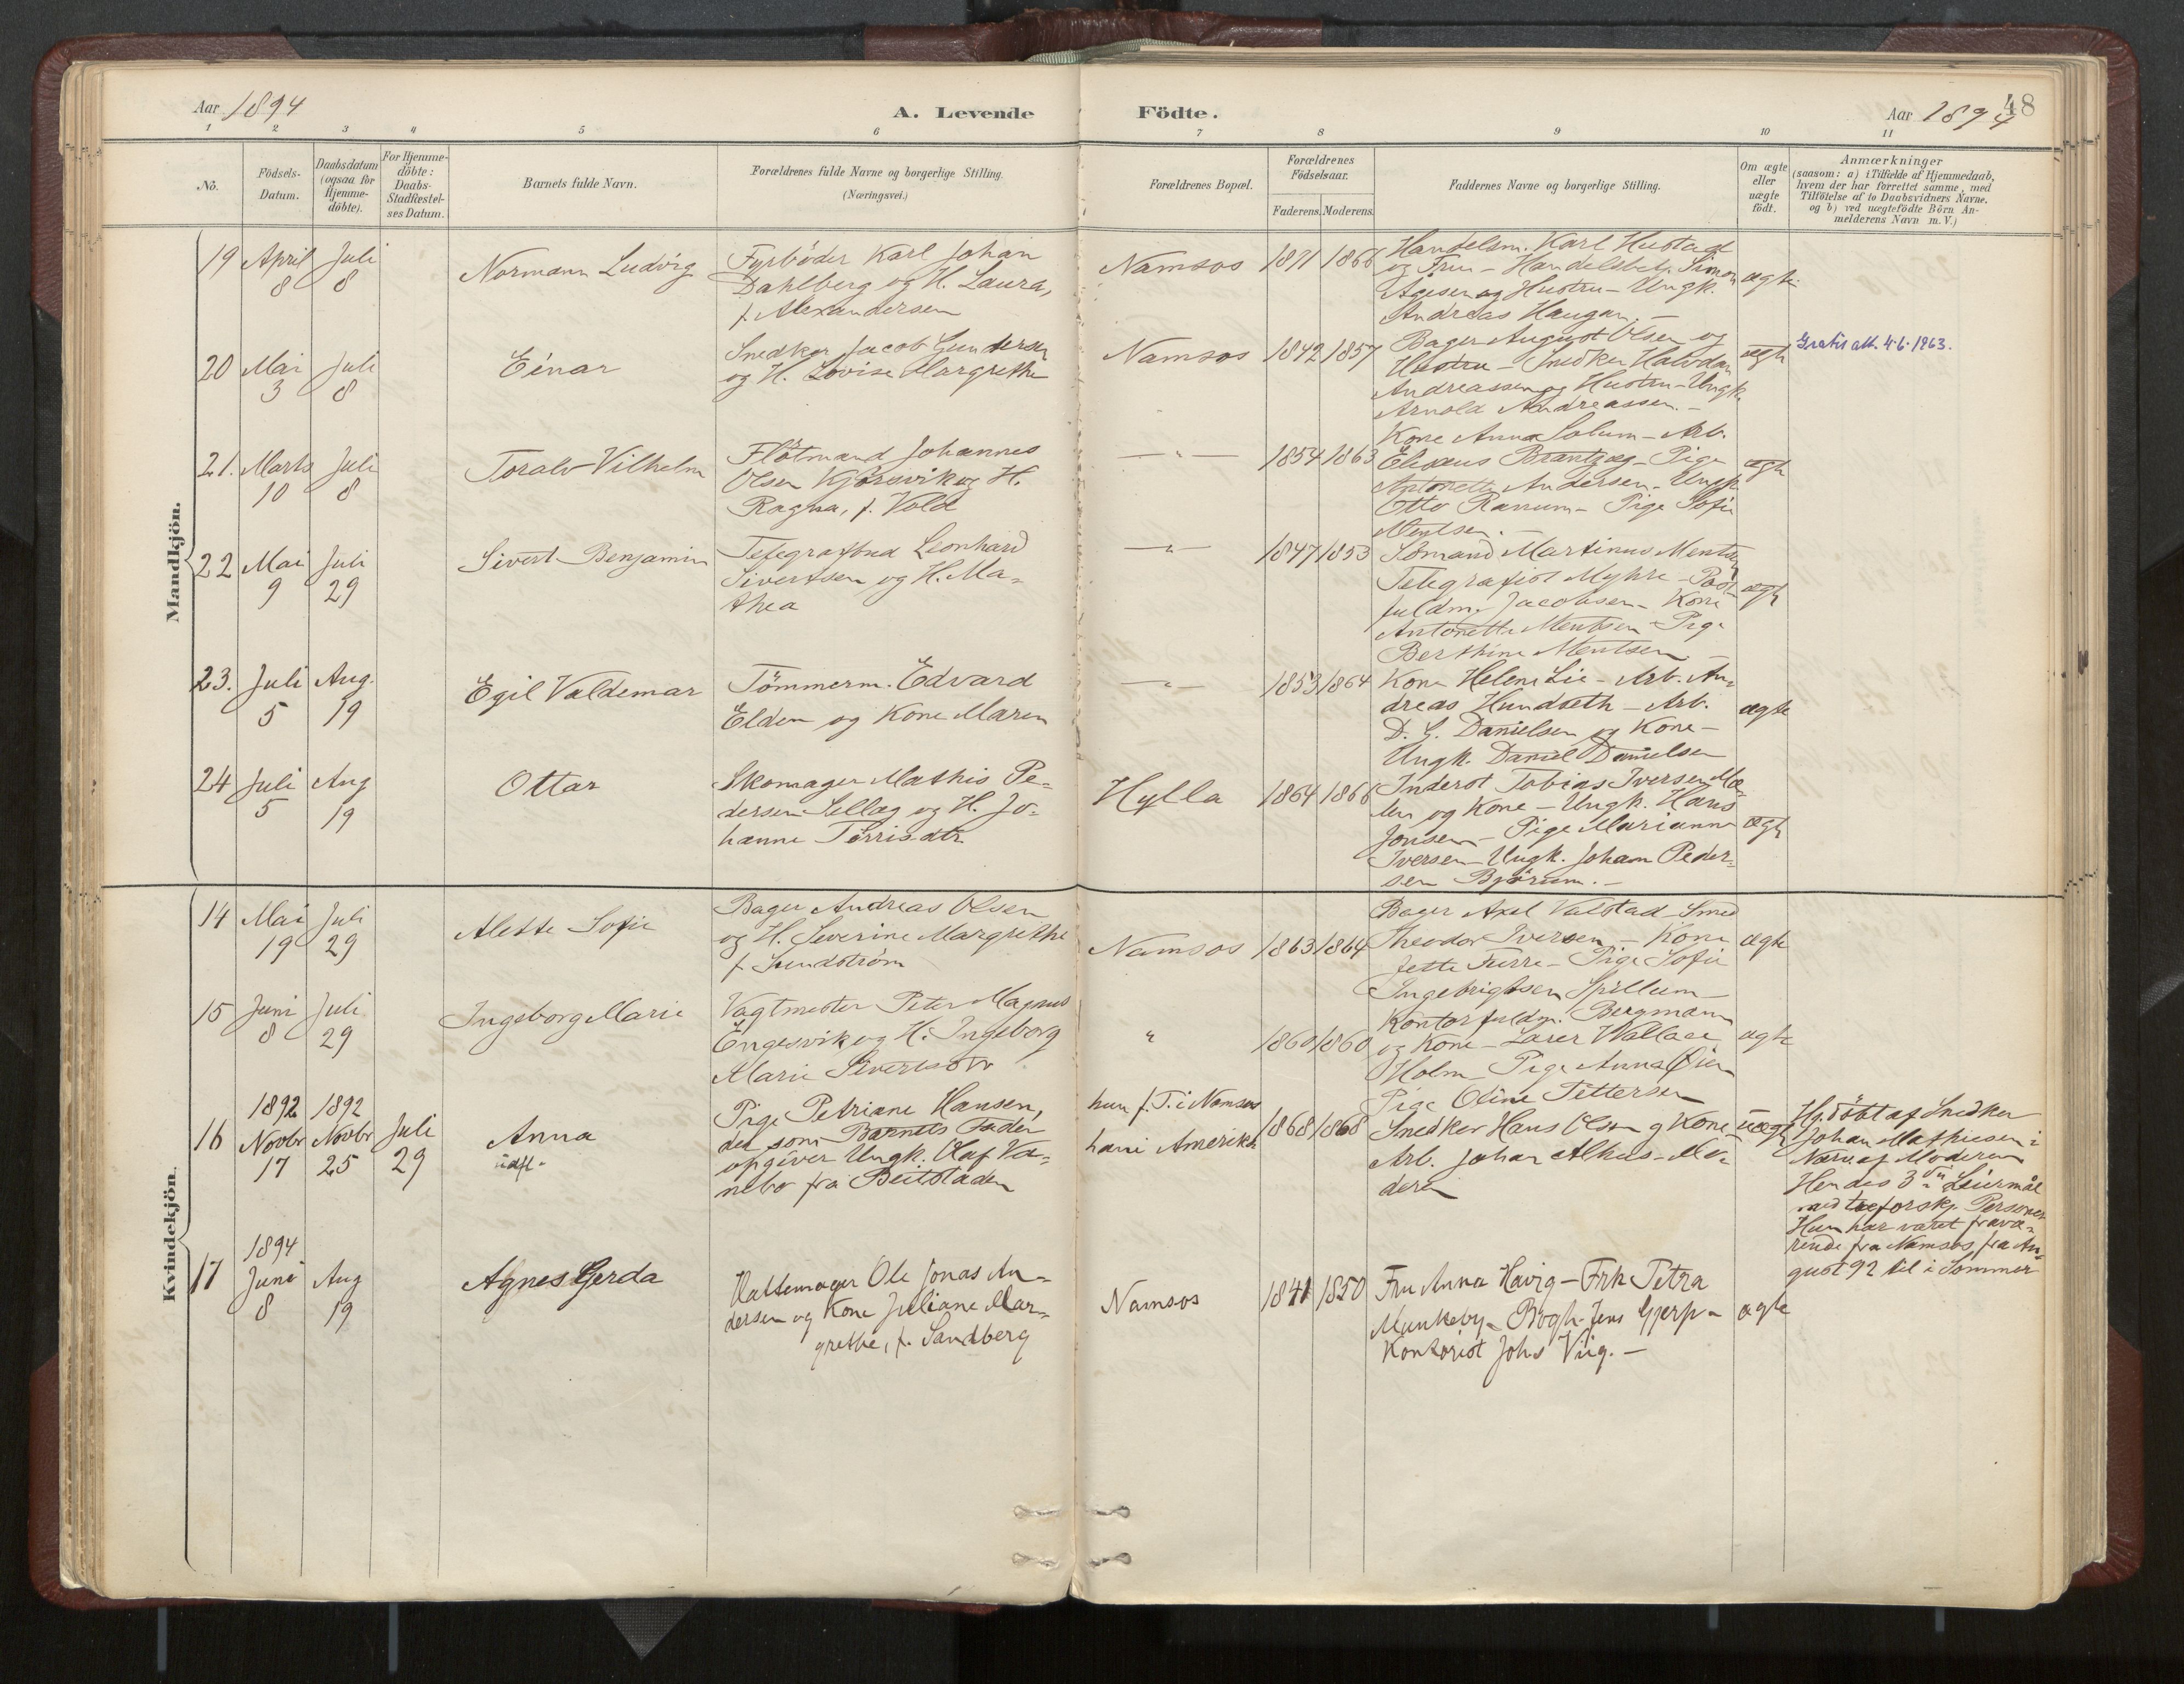 Aar 1894
A. Levende
Födte.
Aar 1894
48
1 2 3 4 5 6 7 8 9 10 11
No.
Födsels-
Datum.
Daabsdatum
(ogsaa for
Hjemme-
döbte).
For Hjemme-
döbte:
Daabs-
Stadfæstel-
ses Datum.
Barnets fulde Navn.
Forældrenes fulde Navne og borgerlige Stilling.
(Næringsvei.)
Forældrenes Bopæl.
Forældrenes
Födselsaar.
Faderens. Moderens.
Faddernes Navne og borgerlige Stilling.
Om ægte
eller
uægte
födt.
Anmærkninger
(saasom: a) i Tilfælde af Hjemmedaab,
hvem der har forrettet samme, med
Tilföielse af to Daabsvidners Navne,
og b) ved uægtefödte Börn An-
melderens Navn m. V.)
Mandkjön.
19 April 8 Juli 8
Normann Ludvig
Fyrböder Karl Johan
Dahlberg og H. Laura,
f. Alexandersen
Namsos
1871 1866
Handelsm. Karl Hustad
og Fru - Handelsbetj. Simon
Agesen og Hustru - Ungk.
Andreas Haugan. -
ægte
20 Mai 3 Juli 8
Einar
Snedker Jacob Gundersen
og H. Lovise Margrethe
Namsos
1842 1857
Bager August Olsen og
Hustru - Snedker Halvdan
Andreassen og Hustru - Ungk.
Arnold Andreassen. -
ægte
Gratis att. 4-6-1963.
21. Marts 10 Juli 8
Toralv Vilhelm
Flötmand Johannes
Olsen Kjörsvik og H.
Ragna, f. Vold
— " —
1854 1863
Kone Anna Solum - Arb.
Eliseus Brantzæg - Pige
Antonette Andersen - Ungk.
Otto Ranum - Pige Sofie
ægte
22 Mai 9 Juli 29
Sivert Benjamin
Telegrafbud Leonhard
Sivertsen og H. Ma-
thea
— " —
1847 1853
Sömand Martinus Mentsen
Telegrafist Myhre - Post-
fuldm. Jacobsen - Kone
Antonette Mentsen - Pige
Berthine Mentsen. -
ægte
23. Juli 5 Aug. 19
Egil Valdemar
Tömmerm. Edvard
Elden og Kone Maren
— " —
1853 1864
Kone Helene Lie - Arb. An-
dreas Hundseth - Arb.
D. G. Danielsen og Kone -
Ungk. Daniel Danielsen
ægte
24 Juli 5 Aug 19
Ottar
Skomager Mathis Pe-
dersen Sellæg og H. Jo-
hanne Torrisdtr
Hylla
1864 1866
Inderst Tobias Iversen Mæ-
len og Kone - Ungk. Hans
Jonsen - Pige Marianne
Iversen - Ungk. Johan Peder-
sen Björum. -
ægte
Kvindekjön.
14 Mai 19 Juli 29
Alette Sofie
Bager Andreas Olsen
og H. Severine Margrethe
f. Lundström
Namsos
1863 1864
Bager Axel Valstad - Smed
Theodor Iversen - Kone
Jette Furre - Pige Sofie
Ingebrigtsen Spillum -
ægte
15 Juni 8 Juli 29
Ingeborg Marie
Vagtmester Peter Magnus
Engesvik og H. Ingeborg
Marie Sivertsdtr
"
1860 1860
Kontorfuldm. Bergmann
og Kone - Laurer Wallace
Holm - Pige Anna Öien
Pige Oline Pettersen
ægte
16 1892 Novbr 17 1892 Novbr 25 Juli 29
Anna
udfl.
Pige Petriane Hansen,
der som Barnets Fader
opgiver Ungk. Olaf Va-
nebo fra Beitstaden
hun f. T. i Namsos
han i Amerika
1868 1868
Snedker Hans Olsen og Kone -
Arb. Johan Alhus - Mo-
deren
uægte
Hj.döbt af Snedker
Johan Mathiesen i
Nærv. af Moderen
Hendes 3die Leiermål
med tre forskj. Personer
Hun har været fravæ-
rende fra Namsos fra Au-
gust 92 til i Sommer
17 1894 Juni 8 Aug 19
Agnes Gerda
Hattemager Ole Jonas An-
dersen og Kone Juliane Mar-
grethe, f. Sandberg
Namsos
1841 1850
Fru Anna Havig - Frk Petra
Munkeby - Bogh. Jens Gjerp -
Kontorist Johs Viig. -
ægte